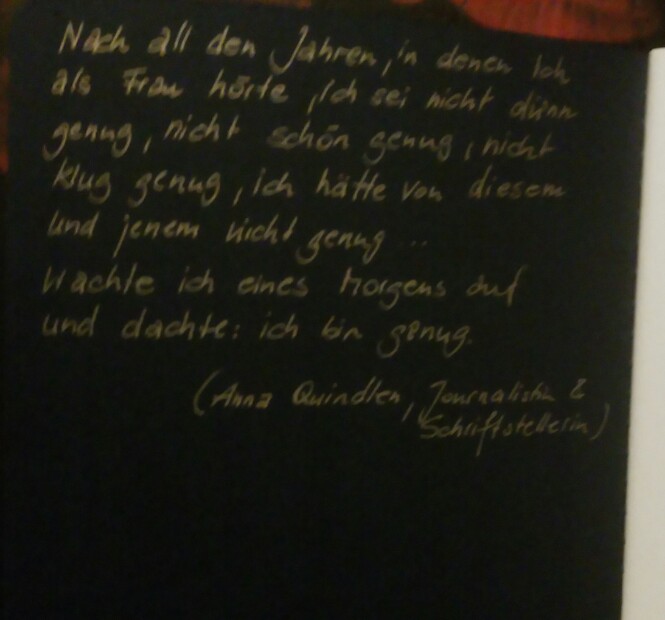 Nach all den Jahren, in denen ich
als Frau hörte, ich sei nicht dünn
genug, nicht schön genug, nicht
klug genug, ich hätte von diesem
und jenem nicht genug ...
Wachte ich eines Morgens auf
und dachte: ich bin genug.
(Anna Quindlen, Journalistin &
Schriftstellerin)